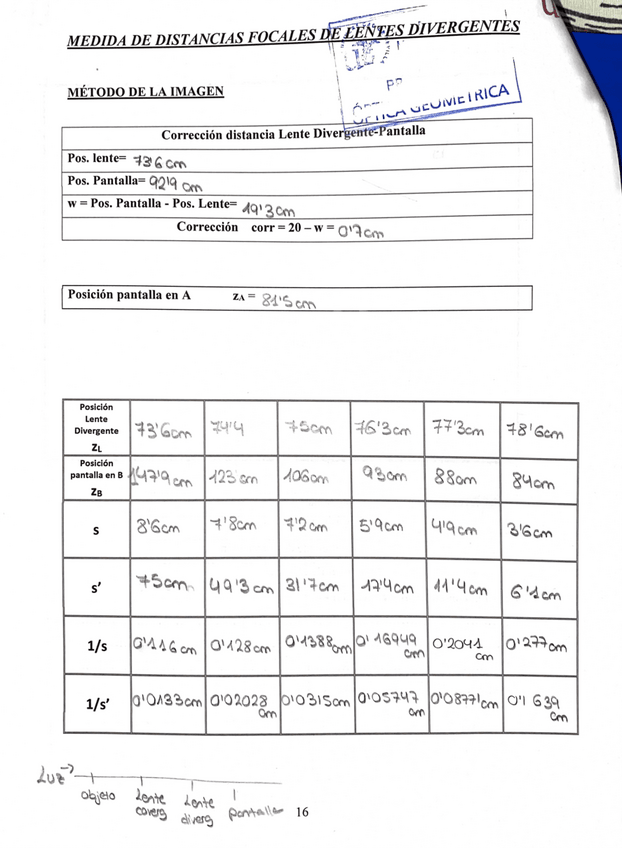 MEDIDA DE DISTANCIAS FOCALES DE LENTES DIVERGENTES
MÉTODO DE LA IMAGEN
ÓPTICA GEOMETRICA
Corrección distancia Lente Divergente-Pantalla
Pos. lente= 73'6 cm
Pos. Pantalla= 92'9 cm
w = Pos. Pantalla - Pos. Lente= 19'3 cm
Corrección corr = 20 – w = 0'7 cm
Posición pantalla en A zA = 81'5 cm
Posición Lente Divergente ZL 73'6cm 74'4 75cm 76'3cm 77'3cm 78'6cm
Posición pantalla en B ZB 147'9 cm 123 cm 106cm 93cm 88cm 84cm
s 8'6cm 7'8cm 7'2cm 5'9cm 4'9cm 3'6cm
s' 75cm 49'3 cm 31'7cm 17'4cm 11'4cm 6'1cm
1/s 0'116 cm 0'128cm 0'1388cm 0'16949 cm 0'2041 cm 0'277cm
1/s' 0'0133cm 0'02028 cm 0'0315cm 0'05747 cm 0'08771cm 0'1639 cm
Luz →
objeto Lente converg Lente diverg pantalla
16